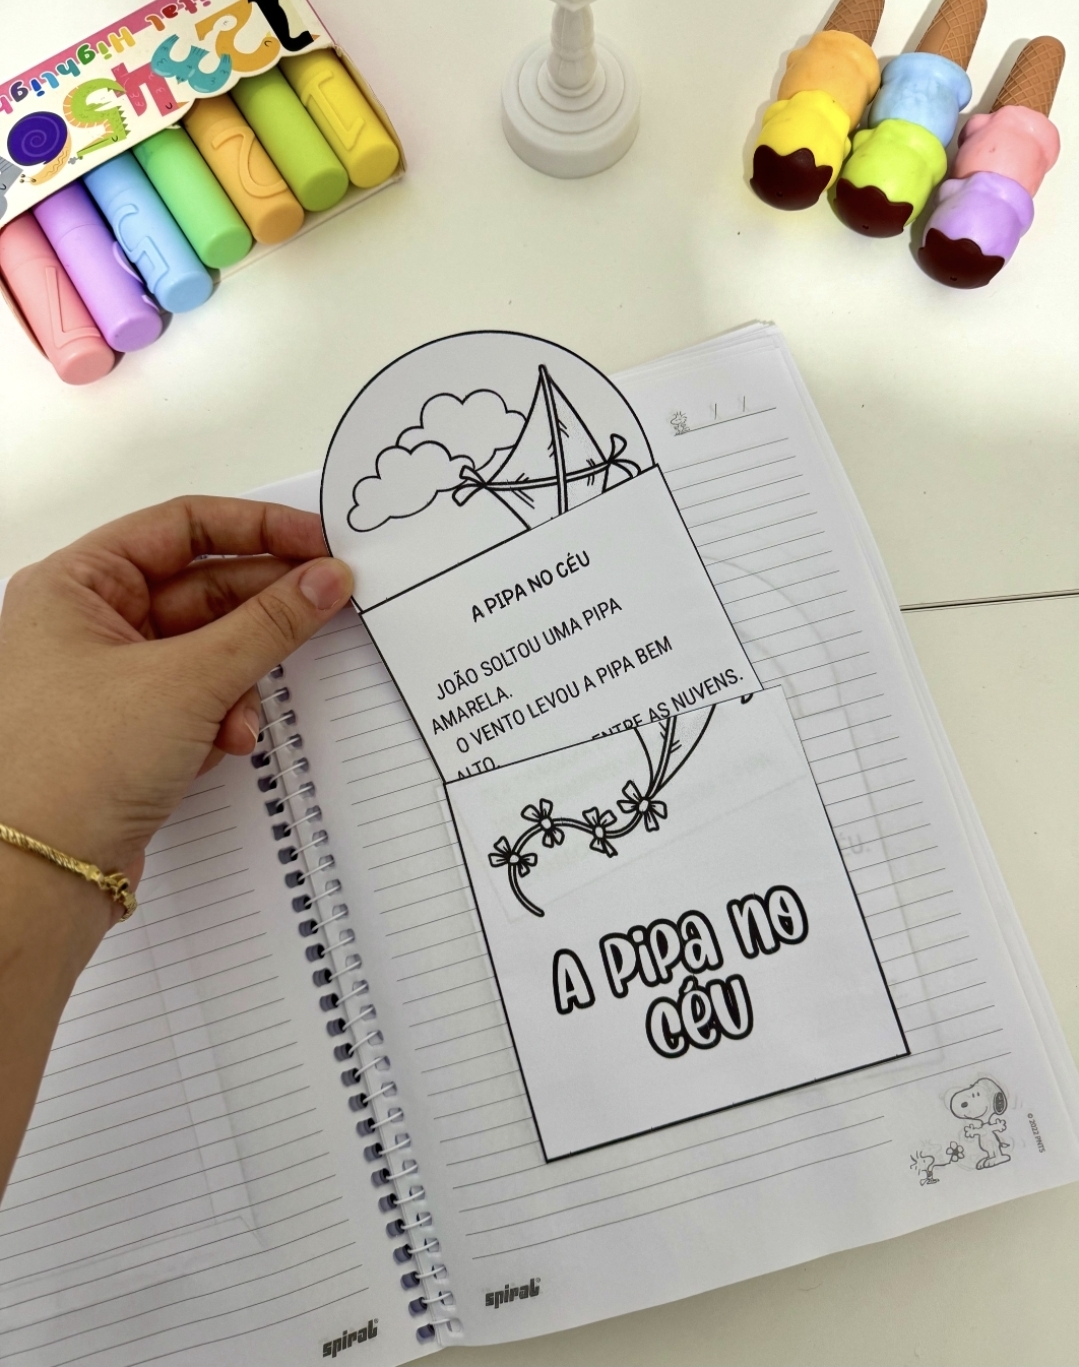 ital Highligh
1 2 3 4 5
1
2
5
7
A PIPA NO CÉU
JOÃO SOLTOU UMA PIPA
AMARELA.
O VENTO LEVOU A PIPA BEM
ALTO.
ENTRE AS NUVENS.
A PiPa no
céu
© 2022 PNTS
spiral
spiral